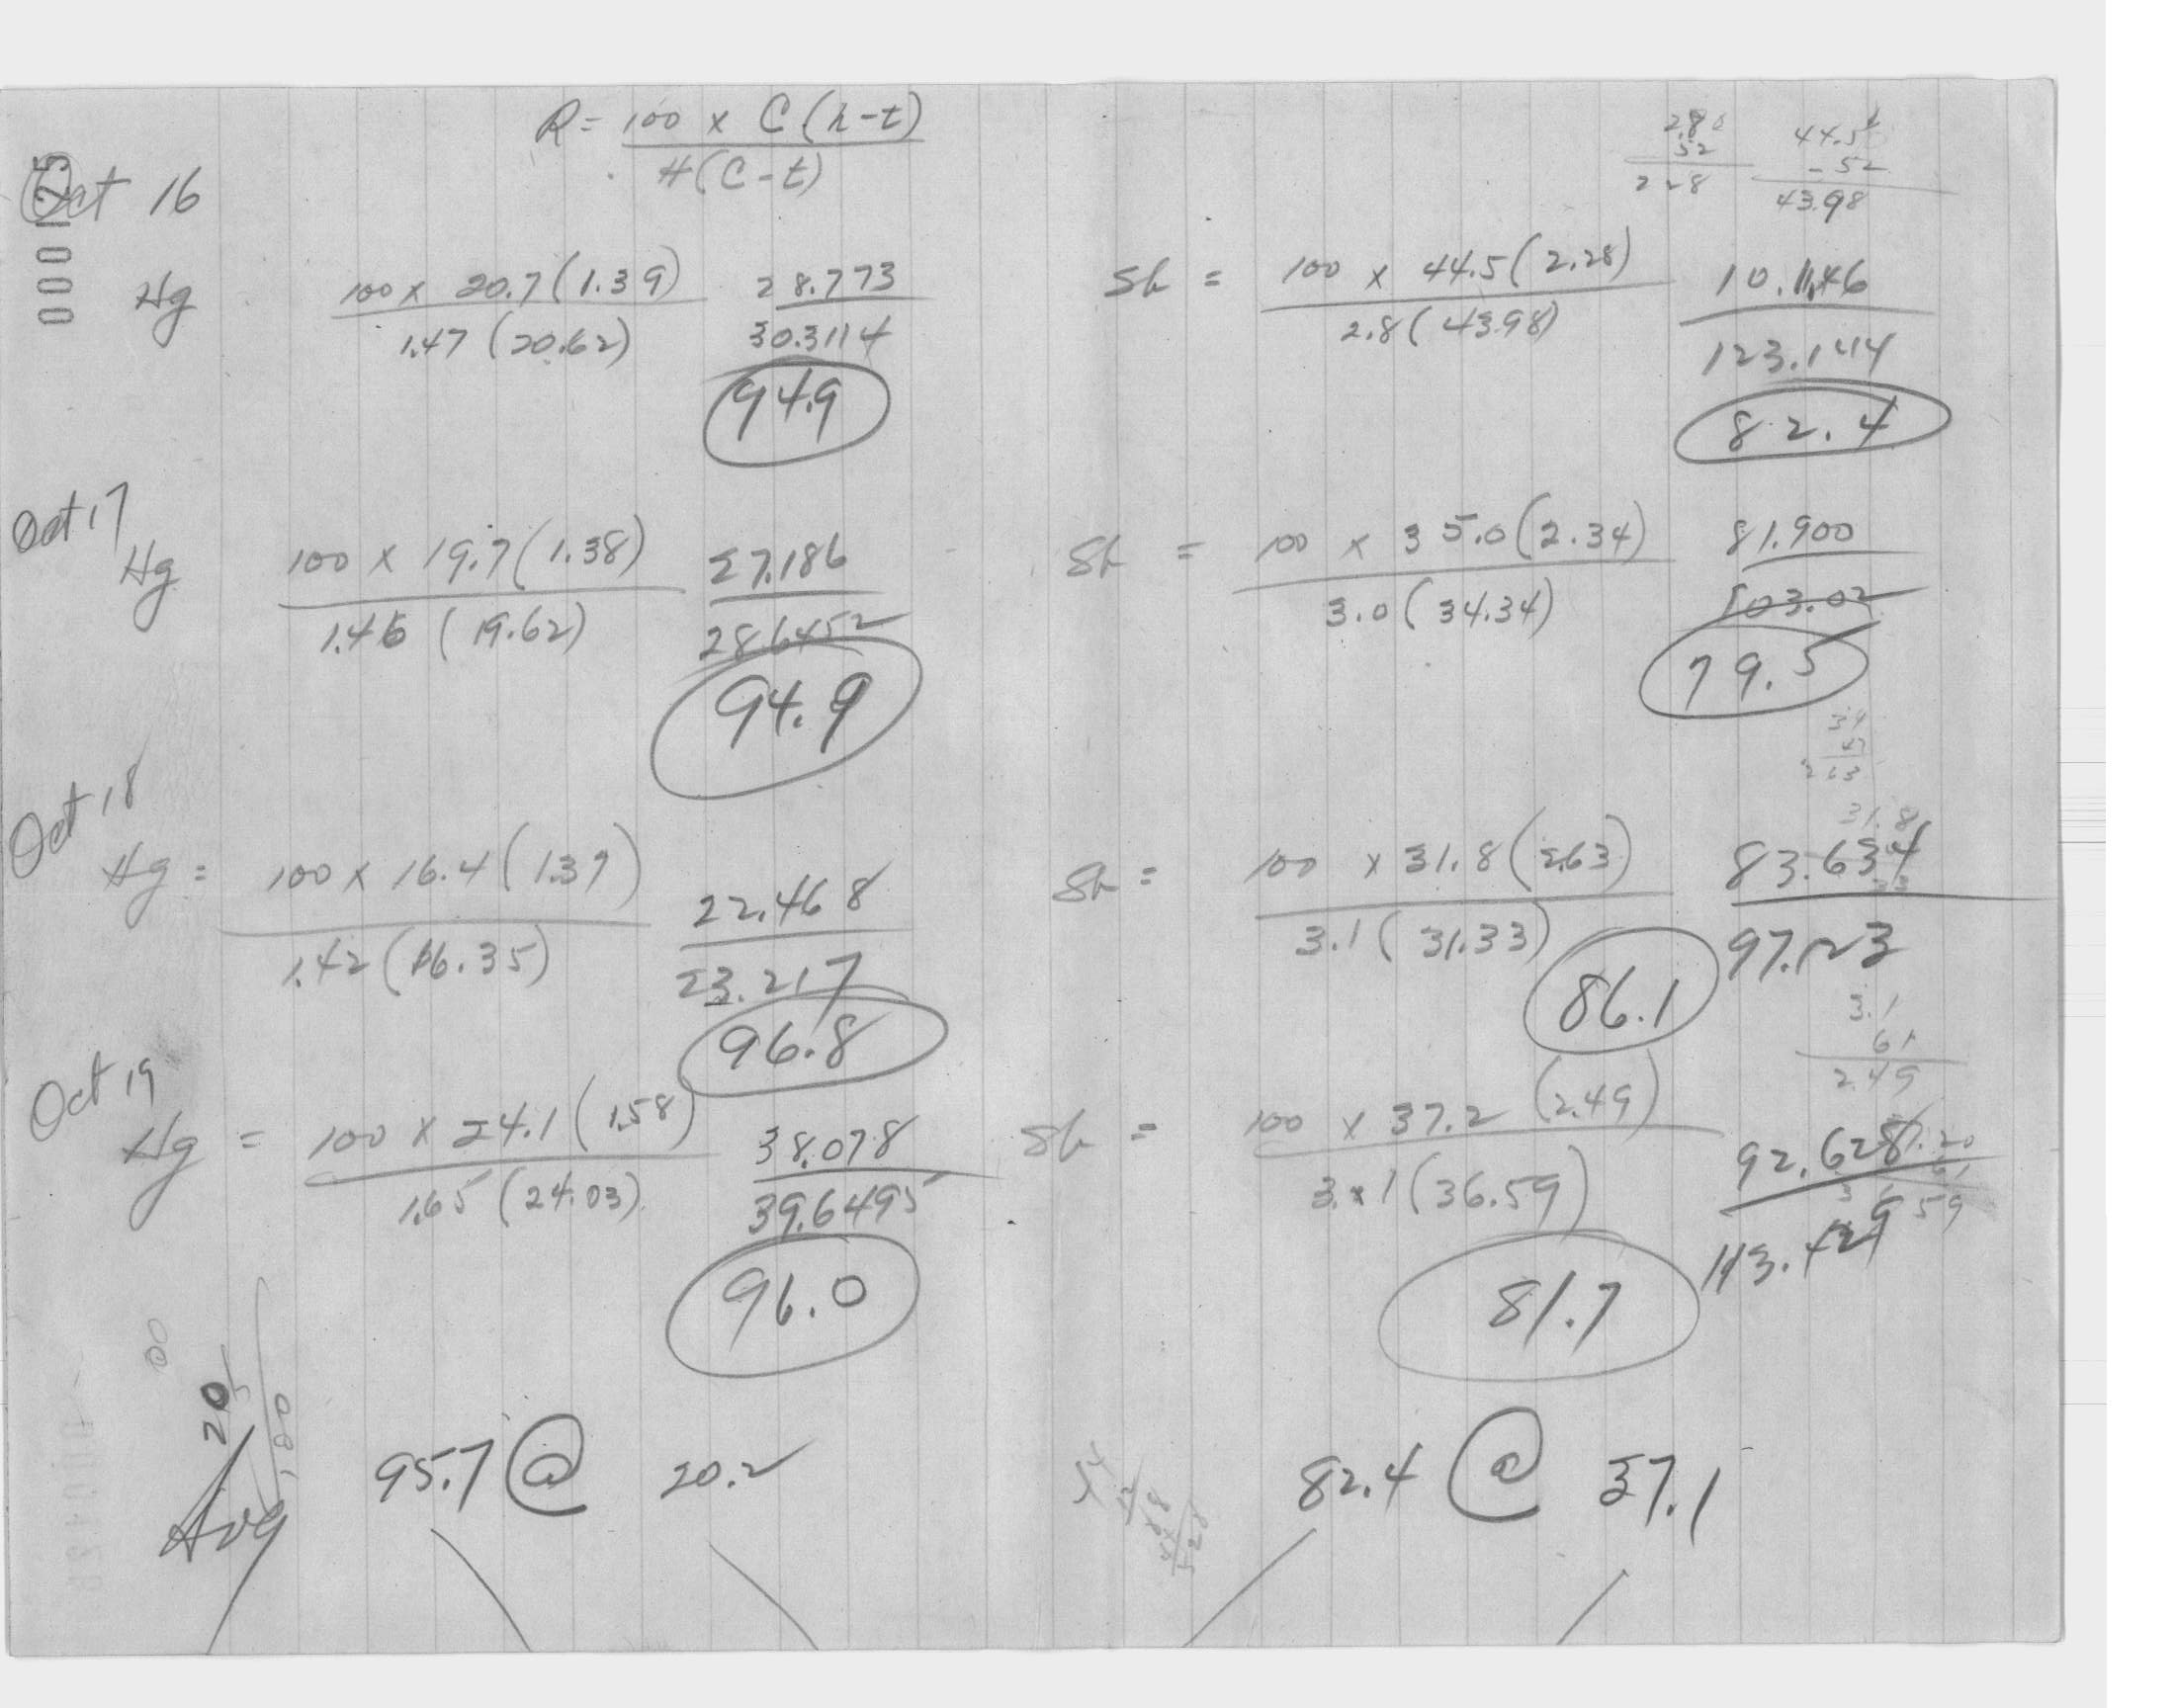 R = 100 x C (h-t)
H (C-t)
2.80
52
228
44.5
- 52
43.98
00012
Oct 16
Hg
100 x 20.7 (1.39)
1.47 (20.62)
28.773
30.3114
94.9
Sh =
100 x 44.5 (2.28)
2.8 (43.98)
10.1146
123.144
82.4
Oct 17
Hg
100 x 19.7 (1.38)
1.46 (19.62)
27.186
28.6452
94.9
Sh =
100 x 35.0 (2.34)
3.0 (34.34)
81.900
103.02
79.5
Oct 18
Hg =
100 x 16.4 (1.37)
1.42 (16.35)
22.468
23.217
96.8
Sh =
100 x 31.8 (2.63)
3.1 (31.33)
31.8
83.634
97.123
86.1
3.1
61
2.49
Oct 19
Hg =
100 x 24.1 (1.58)
1.65 (24.03)
38.078
39.6495
96.0
Sh =
100 x 37.2 (2.49)
3.1 (36.59)
92.628
113.429
81.7
20
Avg
95.7 @ 20.2
82.4 @ 37.1